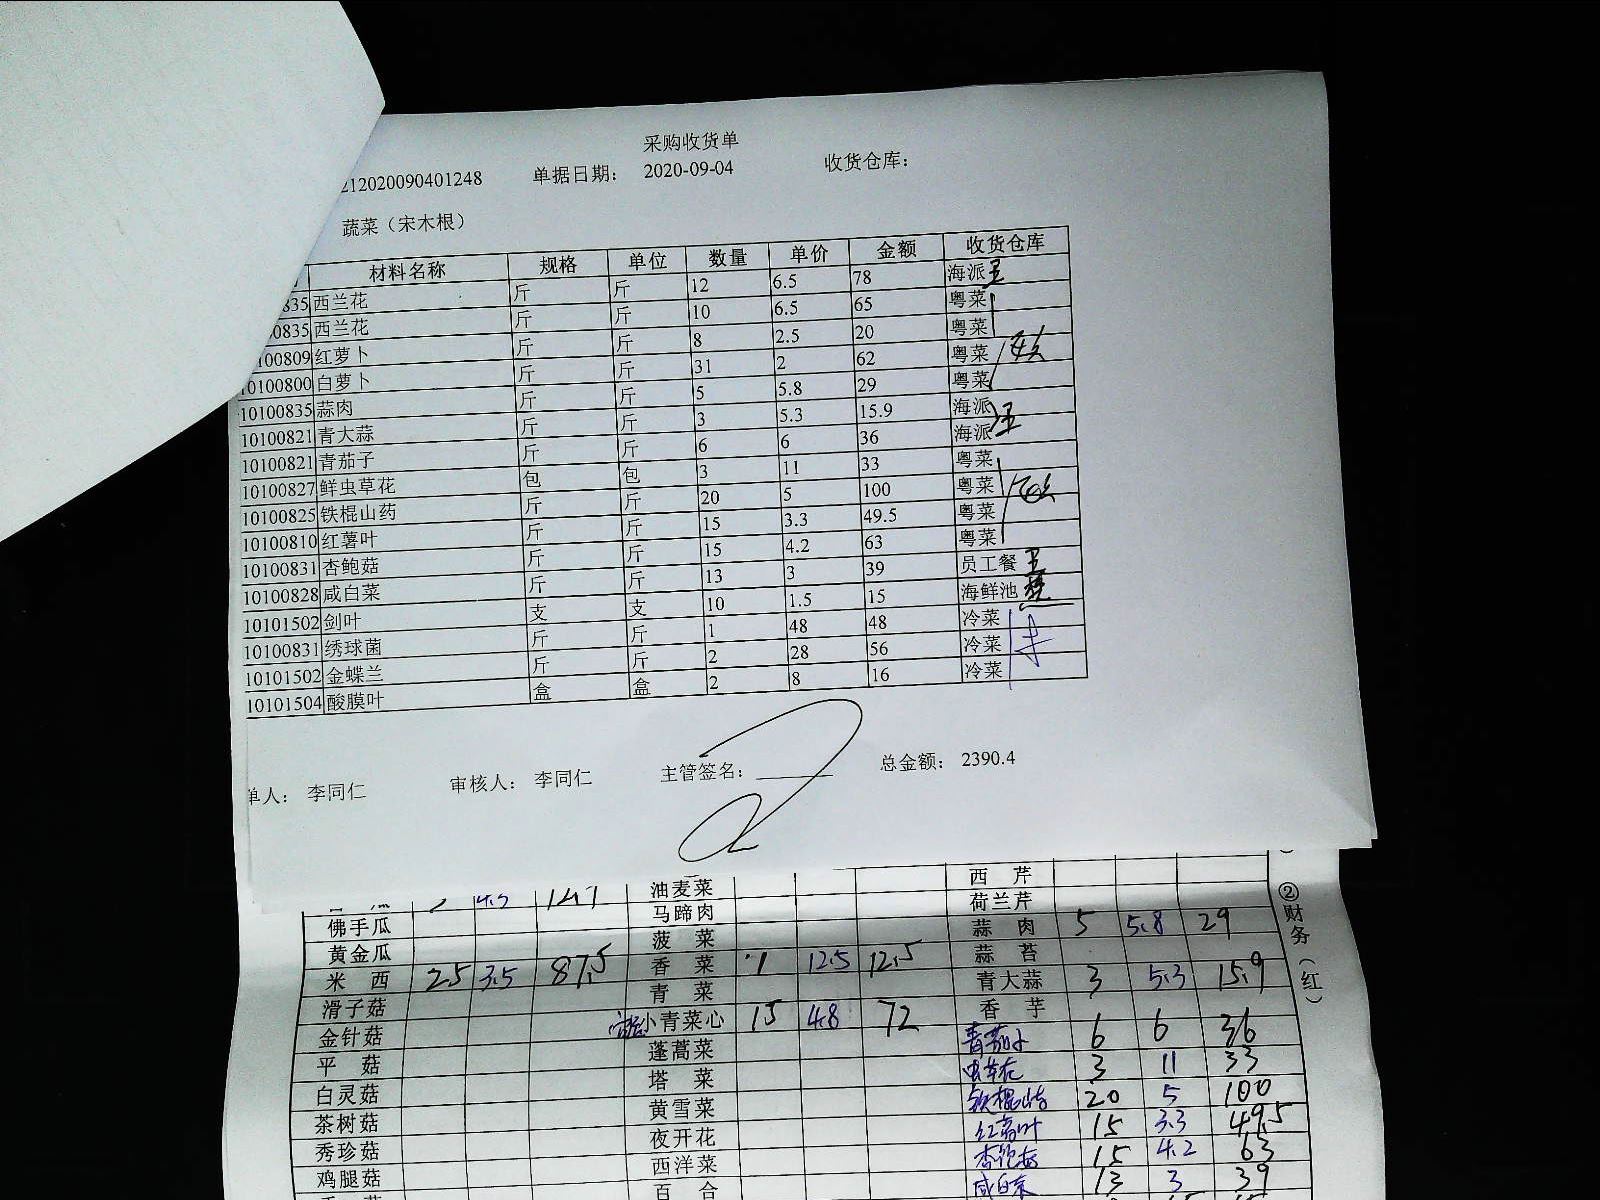 采购收货单
212020090401248 单据日期： 2020-09-04 收货仓库：
蔬菜（宋木根）
材料名称 规格 单位 数量 单价 金额 收货仓库
835 西兰花 斤 斤 12 6.5 78 海派 王
0835 西兰花 斤 斤 10 6.5 65 粤菜
100809 红萝卜 斤 斤 8 2.5 20 粤菜
0100800 白萝卜 斤 斤 31 2 62 粤菜
10100835 蒜肉 斤 斤 5 5.8 29 粤菜
10100821 青大蒜 斤 斤 3 5.3 15.9 海派
10100821 青茄子 斤 斤 6 6 36 海派 王
10100827 鲜虫草花 包 包 3 11 33 粤菜
10100825 铁棍山药 斤 斤 20 5 100 粤菜
10100810 红薯叶 斤 斤 15 3.3 49.5 粤菜
10100831 杏鲍菇 斤 斤 15 4.2 63 粤菜
10100828 咸白菜 斤 斤 13 3 39 员工餐
10101502 剑叶 支 支 10 1.5 15 海鲜池
10100831 绣球菌 斤 斤 1 48 48 冷菜
10101502 金蝶兰 斤 斤 2 28 56 冷菜
10101504 酸膜叶 盒 盒 2 8 16 冷菜
单人： 李同仁 审核人： 李同仁 主管签名： 总金额： 2390.4
油麦菜 西 芹
佛手瓜 马蹄肉 荷兰芹
黄金瓜 菠 菜 蒜 肉 5 5.8 29
米 西 25 3.5 87.5 香 菜 1 12.5 12.5 蒜 苔
滑子菇 青 菜 青大蒜 3 5.3 15.9
金针菇 小青菜心 15 4.8 72 香 芋
平 菇 蓬蒿菜 青茄子 6 6 36
白灵菇 塔 菜 虫草花 3 11 33
茶树菇 黄雪菜 铁棍山药 20 5 100
秀珍菇 夜开花 红薯叶 15 3.3 49.5
鸡腿菇 西洋菜 杏鲍菇 15 4.2 63
百 合 咸白菜 13 3 39
②财务（红）